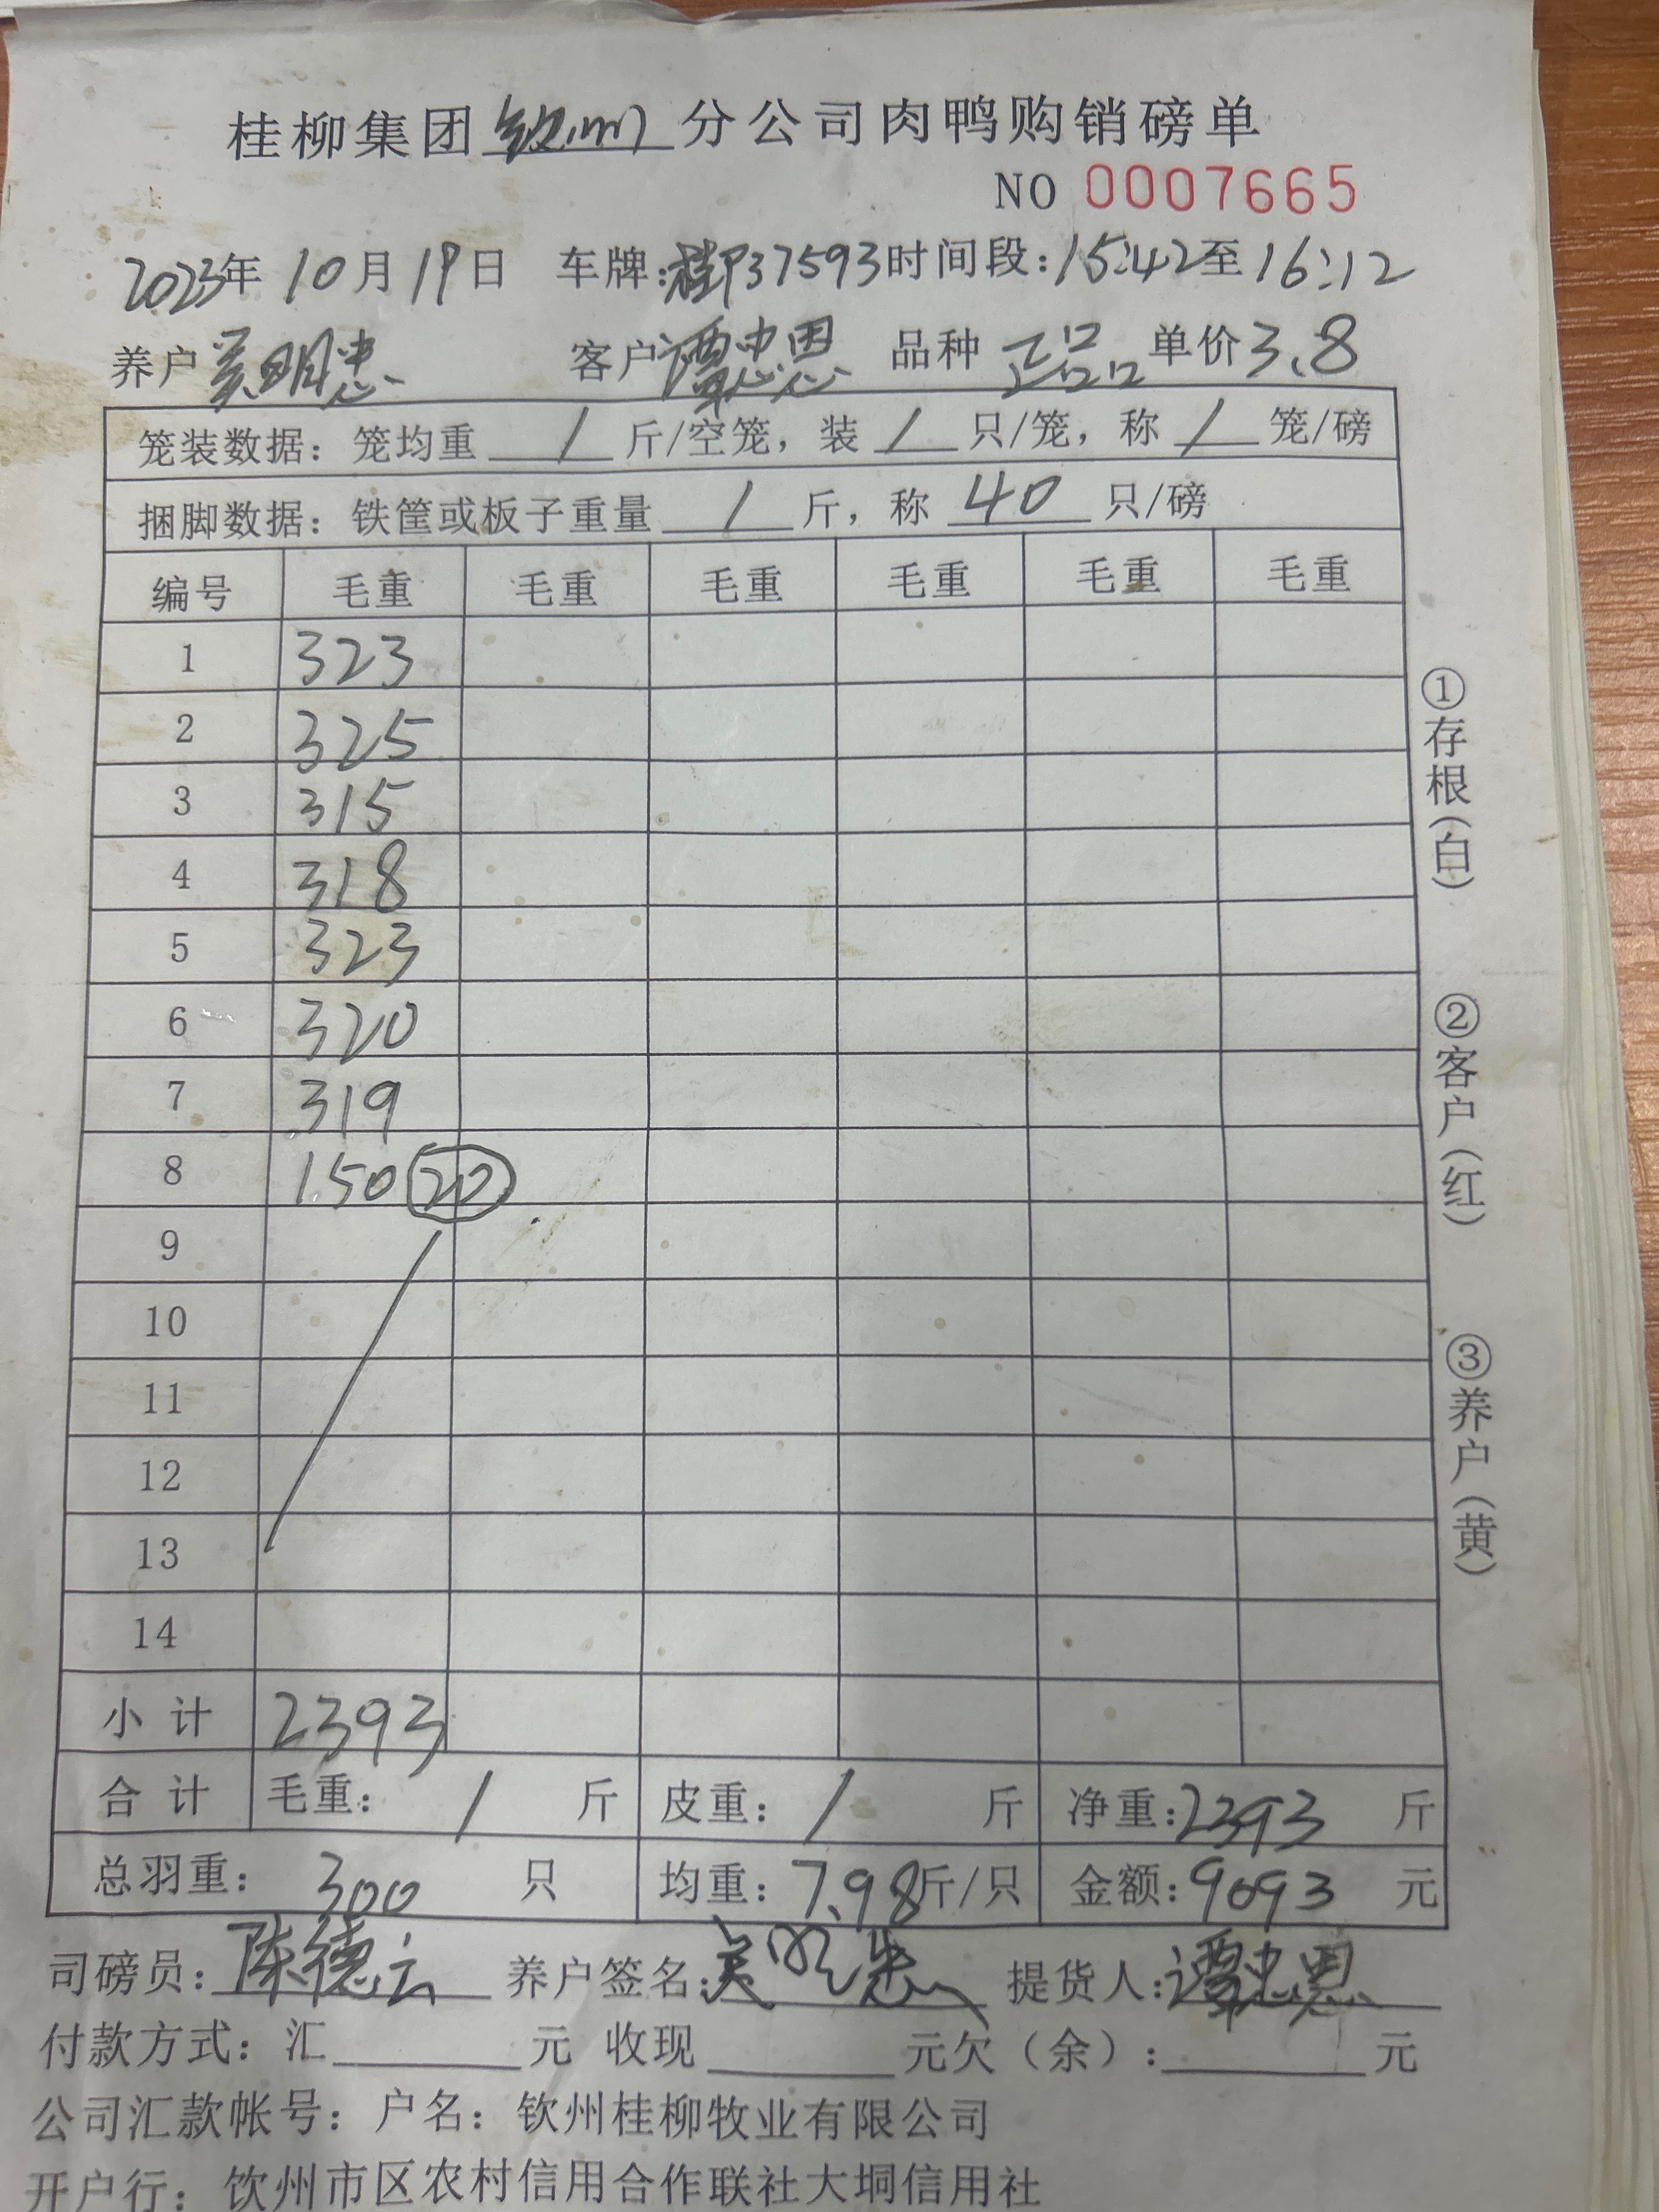 桂柳集团钦州分公司肉鸭购销磅单
NO 0007665
2023年 10月 19日 车牌:桂P37593 时间段:15:42至16:12
养户 吴明忠 客户 谭忠恩 品种 正品 单价 3.8
笼装数据: 笼均重 / 斤/空笼, 装 / 只/笼, 称 / 笼/磅
捆脚数据: 铁筐或板子重量 / 斤, 称 40 只/磅
编号 毛重 毛重 毛重 毛重 毛重 毛重
1 323
2 325
3 315
4 318
5 323
6 320
7 319
8 150 20
9
10
11
12
13
14
小计 2393
合计 毛重: / 斤 皮重: / 斤 净重:2393 斤
总羽重: 300 只 均重: 7.98斤/只 金额:9093 元
司磅员:陈德云 养户签名:吴明忠 提货人:谭忠恩
付款方式: 汇 元 收现 元欠(余): 元
公司汇款帐号: 户名: 钦州桂柳牧业有限公司
开户行: 钦州市区农村信用合作联社大垌信用社
①存根(白)
②客户(红)
③养户(黄)